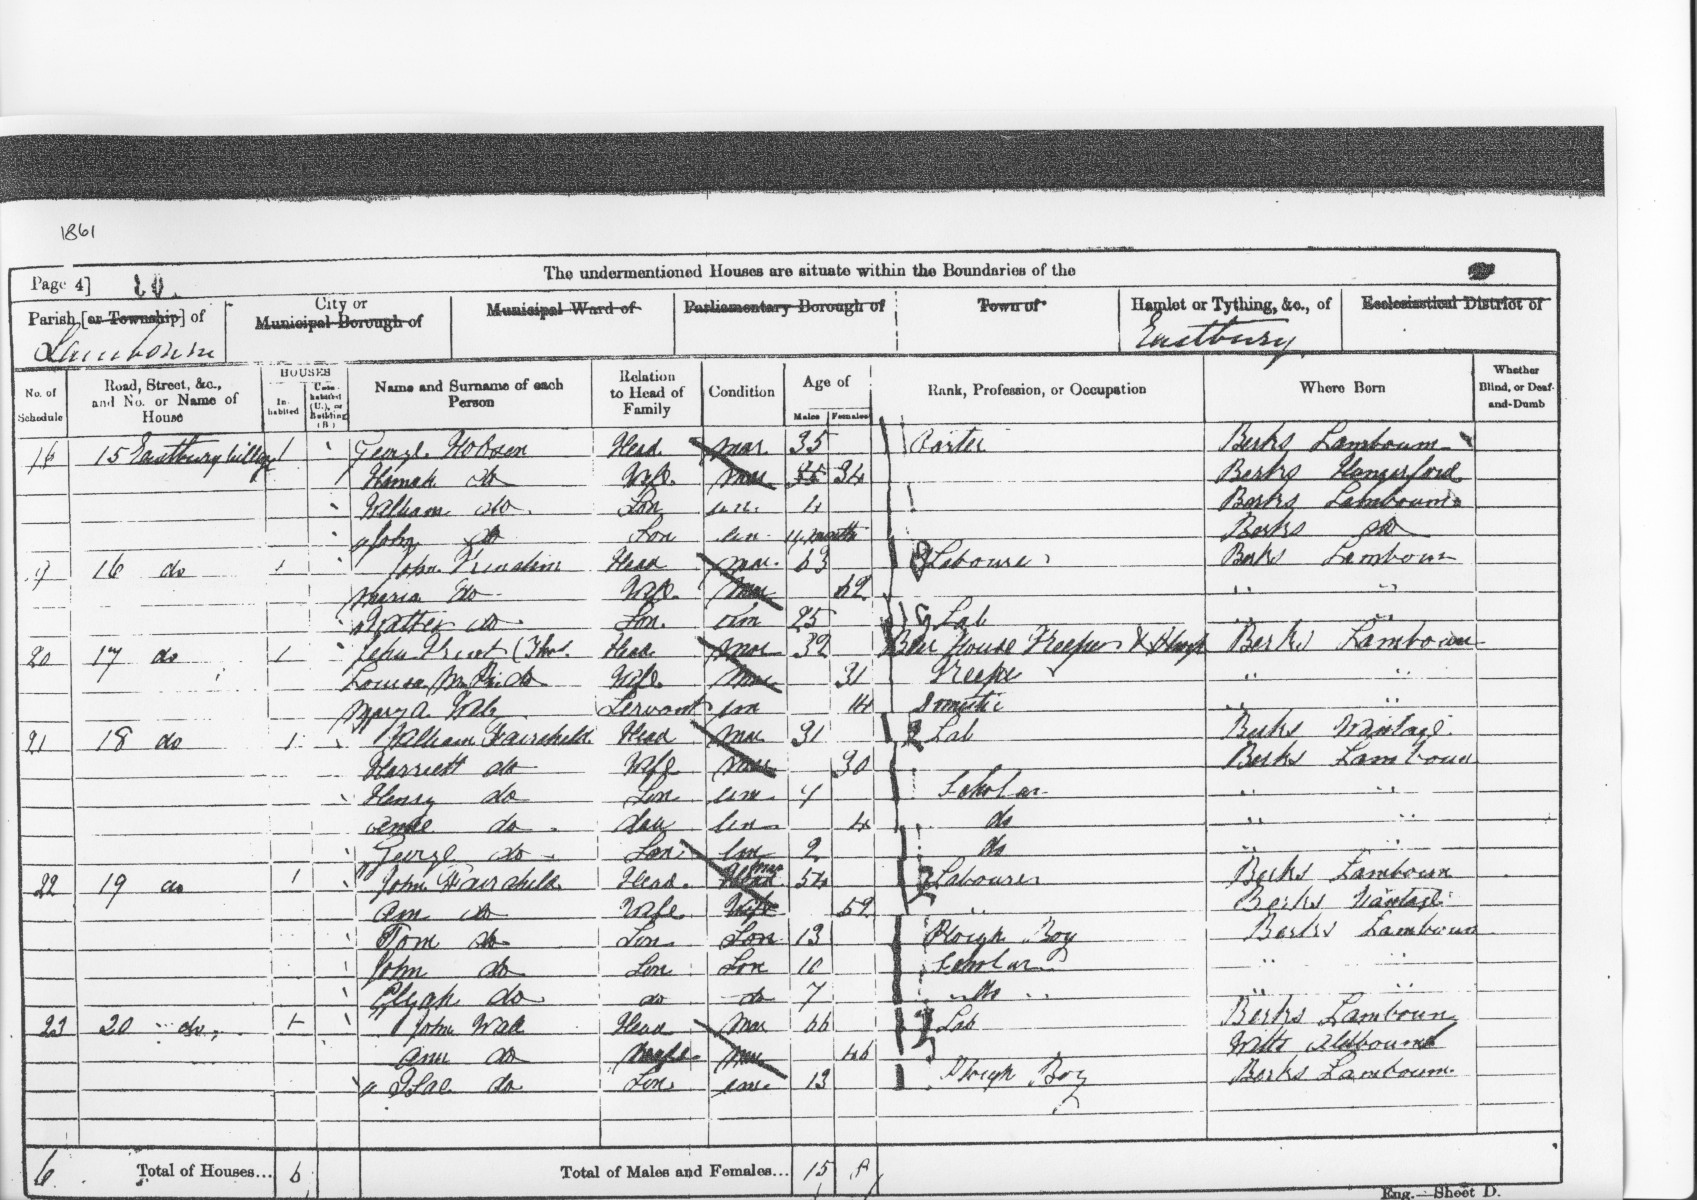 1861
The undermentioned Houses are situate within the Boundaries of the
Page 4] 20.
Parish [or Township] of
City or
Municipal Borough of
Municipal Ward of
Parliamentary Borough of
Town of
Hamlet or Tything, &c., of
Ecclesiastical District of
Lambourn
Eastbury
No. of Schedule
Road, Street, &c., and No. or Name of House
HOUSES
Inhabited
Uninhabited (U.), or Building (B)
Name and Surname of each Person
Relation to Head of Family
Condition
Age of
Males Females
Rank, Profession, or Occupation
Where Born
Whether Blind, or Deaf-and-Dumb
15 Eastbury 1 George Hobson Head mar 35 Carter Berks Lambourn
do Wife mar 34 Berks Hungerford
William do Son un 4 Berks Lambourn
John do Son un Berks do
16 do 1 John Head mar 63 Labourer Berks Lambourn
Maria do Wife mar 62 " "
do Son un 25 Lab " "
20 17 do 1 Head mar 32 Beer House Keeper & Berks Lambourn
Louisa do Wife mar 31 " "
Mary A. Servant un 14 " "
21 18 do 1 William Fairchild Head mar 31 Lab Berks Wantage
Harriett do Wife mar 30 Berks Lambourn
Henry do Son un 7 Scholar " "
do dau un 4 do " "
George do Son un 2 do " "
22 19 do 1 John Fairchild Head mar 54 Labourer Berks Lambourn
Ann do Wife Wife 52 " Berks Wantage
Tom do Son Son 13 Plough Boy Berks Lambourn
John do Son Son 10 Scholar " "
Elijah do do do 7 " do " " "
23 20 do 1 John Head mar 66 Lab Berks Lambourn
Ann do Wife mar 46 Wilts Aldbourne
do Son un 13 Plough Boy Berks Lambourn
6 Total of Houses... 6 Total of Males and Females... 15
Eng.—Sheet D.